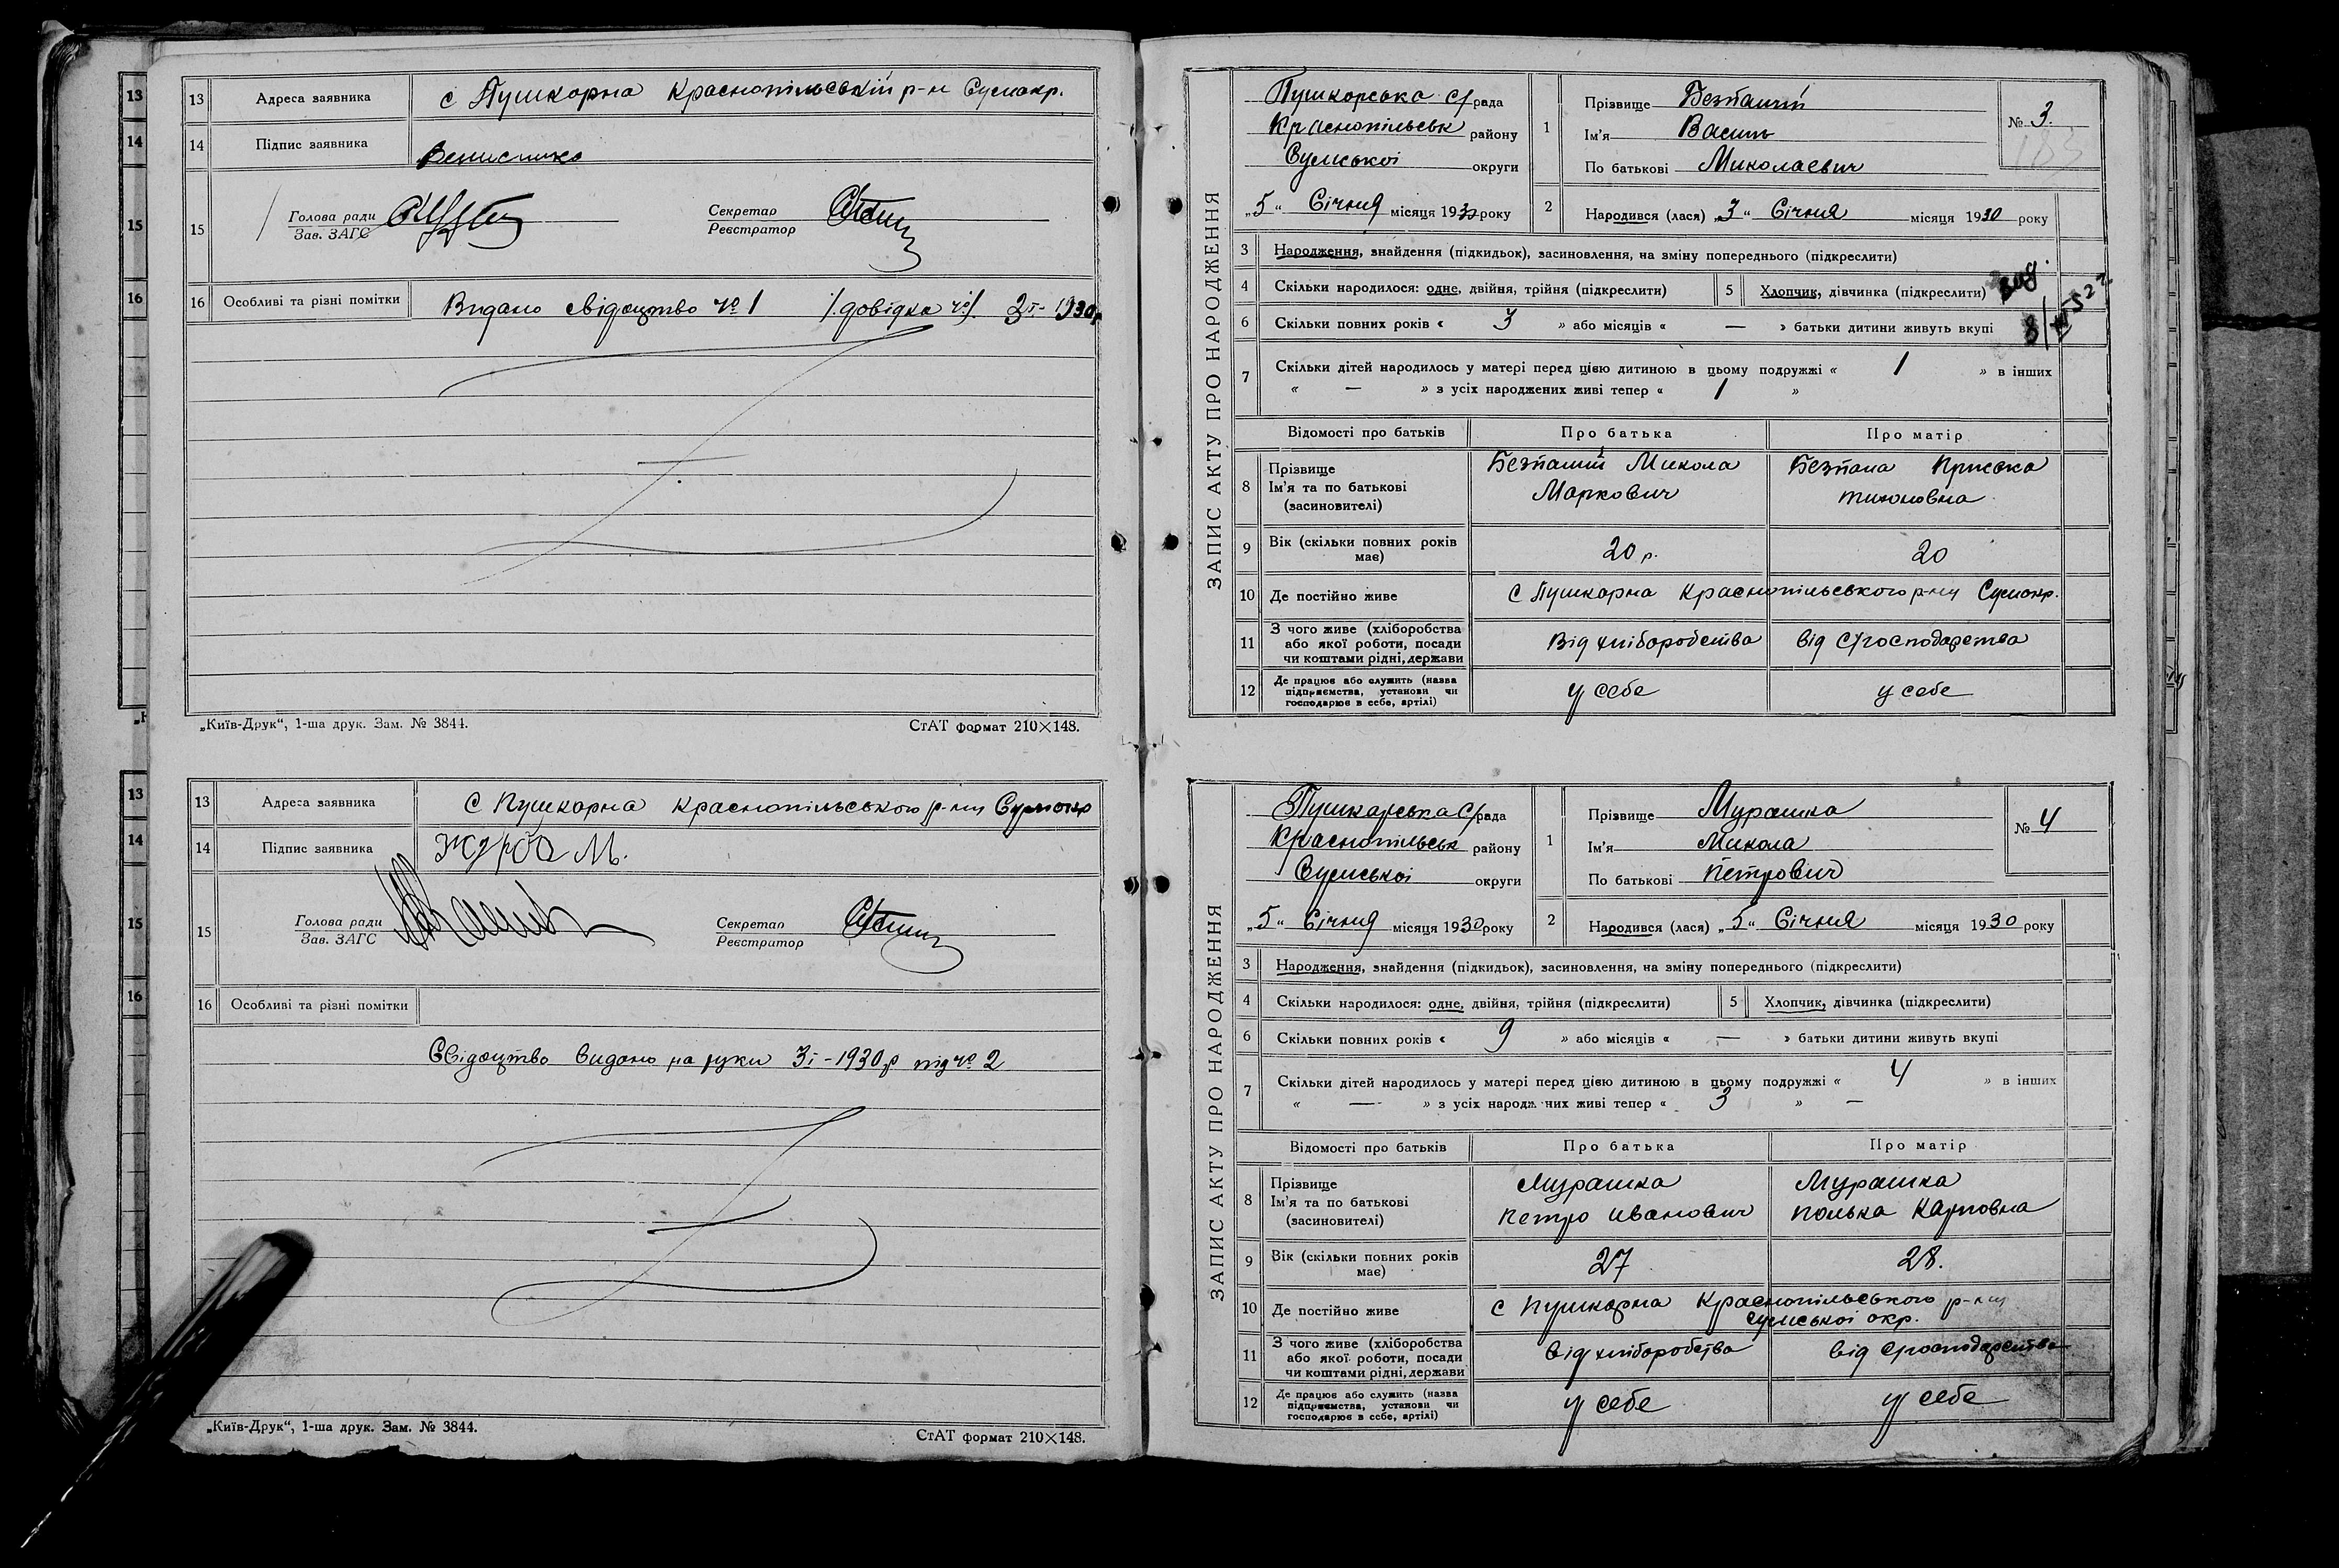 13 Адреса заявника с Пушкарна Краснопільський р-н Сумокр.
14 Підпис заявника
15 Голова ради Секретар
Зав. ЗАГС Реєстратор
16 Особливі та різні помітки Видано свідоцтво № 1 /довідка №/ 2 I - 1930р
„Київ-Друк“, 1-ша друк. Зам. № 3844. СтАТ формат 210×148.
13 Адреса заявника с Пушкарна Краснопільського р-ну Сумокр
14 Підпис заявника Журба М.
15 Голова ради Секретар
Зав. ЗАГС Реєстратор
16 Особливі та різні помітки
Свідоцтво видано на руки 3 I - 1930р під № 2
„Київ-Друк“, 1-ша друк. Зам. № 3844. СтАТ формат 210×148.
13
14
15
16
13
14
15
16
ЗАПИС АКТУ ПРО НАРОДЖЕННЯ
Пушкарська с/рада
Краснопільськ району
Сумської округи
„5“ Січня місяця 1930 року
1 Прізвище Безпалий
Ім'я Василь
По батькові Миколаєвич
№ 3.
2 Народився (лася) „3“ Січня місяця 1930 року
3 Народження, знайдення (підкидьок), засиновлення, на зміну попереднього (підкреслити)
4 Скільки народилося: одне, двійня, трійня (підкреслити) 5 Хлопчик, дівчинка (підкреслити)
6 Скільки повних років « 3 » або місяців « — » батьки дитини живуть вкупі
7 Скільки дітей народилось у матері перед цією дитиною в цьому подружжі « 1 » в інших
« — » з усіх народжених живі тепер « 1 »
Відомості про батьків Про батька Про матір
8 Прізвище Безпалий Микола Безпала Приська
Ім'я та по батькові Маркович Тихоновна
(засиновителі)
9 Вік (скільки повних років має) 20 р. 20
10 Де постійно живе с Пушкарна Краснопільського р-ну Сумокр.
11 З чого живе (хліборобства
або якої роботи, посади Від хліборобства від с/господарства
чи коштами рідні, держави
12 Де працює або служить (назва
підприємства, установи чи у себе у себе
господарює в себе, артілі)
ЗАПИС АКТУ ПРО НАРОДЖЕННЯ
Пушкарська с/рада
Краснопільськ району
Сумської округи
„5“ Січня місяця 1930 року
1 Прізвище Мурашка
Ім'я Микола
По батькові Петрович
№ 4
2 Народився (лася) „5“ Січня місяця 1930 року
3 Народження, знайдення (підкидьок), засиновлення, на зміну попереднього (підкреслити)
4 Скільки народилося: одне, двійня, трійня (підкреслити) 5 Хлопчик, дівчинка (підкреслити)
6 Скільки повних років « 9 » або місяців « — » батьки дитини живуть вкупі
7 Скільки дітей народилось у матері перед цією дитиною в цьому подружжі « 4 » в інших
« — » з усіх народжених живі тепер « 3 » —
Відомості про батьків Про батька Про матір
8 Прізвище Мурашка Мурашка
Ім'я та по батькові Петро Иванович Полька Карповна
(засиновителі)
9 Вік (скільки повних років має) 27 28.
10 Де постійно живе с Пушкарна Краснопільського р-ну
Сумської окр.
11 З чого живе (хліборобства
або якої роботи, посади від хліборобства від с/господарства
чи коштами рідні, держави
12 Де працює або служить (назва
підприємства, установи чи у себе у себе
господарює в себе, артілі)